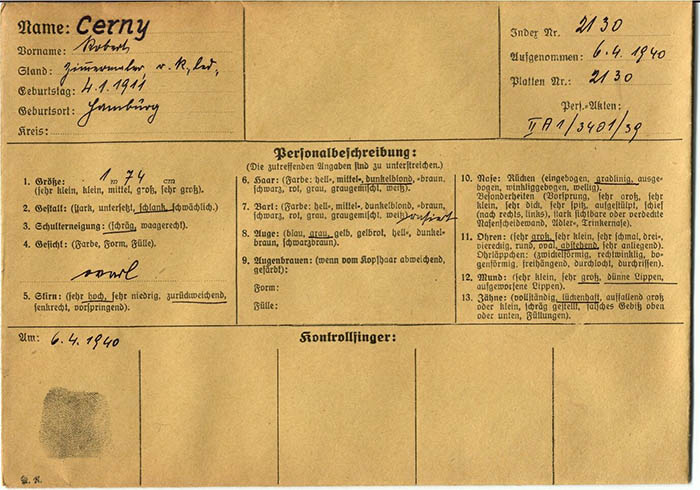 Name: Cerny
Vorname: Robert
Stand: Zimmermaler, r. k., led.
Geburtstag: 4.1.1911
Geburtsort: Hamburg
Kreis:
Index Nr. 2130
Aufgenommen: 6.4.1940
Platten Nr.: 2130
Pers.-Akten:
II A 1/3401/39
Personalbeschreibung:
(Die zutreffenden Angaben sind zu unterstreichen.)
1. Größe: 1 m 74 cm
(sehr klein, klein, mittel, groß, sehr groß).
2. Gestalt: (stark, untersetzt, schlank, schwächlich.)
3. Schulterneigung: (schräg, waagerecht).
4. Gesicht: (Farbe, Form, Fülle).
oval
5. Stirn: (sehr hoch, sehr niedrig, zurückweichend,
senkrecht, vorspringend).
6. Haar: (Farbe: hell-, mittel-, dunkelblond, -braun,
schwarz, rot, grau, graugemischt, weiß).
7. Bart: (Farbe: hell-, mittel-, dunkelblond, -braun,
schwarz, rot, grau, graugemischt, weiß) rasiert
8. Auge: (blau, grau, gelb, gelbrot, hell-, dunkel-
braun, schwarzbraun).
9. Augenbrauen: (wenn vom Kopfhaar abweichend,
gefärbt):
Form:
Fülle:
10. Nase: Rücken (eingebogen, gradlinig, ausge-
bogen, winkliggebogen, wellig).
Besonderheiten (Vorsprung, sehr groß, sehr
klein, sehr dick, sehr spitz, aufgestülpt, schief
(nach rechts, links), stark sichtbare oder verdeckte
Nasenscheidewand, Adler-, Trinkernase).
11. Ohren: (sehr groß, sehr klein, sehr schmal, drei-,
viereckig, rund, oval, abstehend, sehr anliegend).
Ohrläppchen: (zwickelförmig, rechtwinklig, bo-
genförmig, freihängend, durchlocht, durchrissen).
12. Mund: (sehr klein, sehr groß, dünne Lippen,
aufgeworfene Lippen).
13. Zähne: (vollständig, lückenhaft, auffallend groß
oder klein, schräg gestellt, falsches Gebiß oben
oder unten, Füllungen).
Am: 6.4.1940
Kontrollfinger: